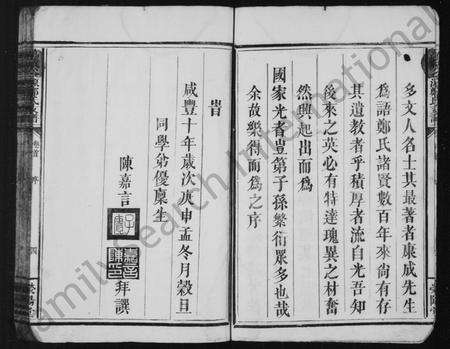 多文人名士其最著者康成先生
為語鄭氏諸賢數百年來尚有存
其遺教者乎積厚者流自光吾知
後來之英必有特達瑰異之材奮
然興起出而為
國家光者豈第子孫繁衍眾多也哉
余故樂得而為之序
旹
咸豐十年歲次庚申孟冬月穀旦
同學弟優廩生
陳嘉言
拜譔
卷首
序
FamilySearch International